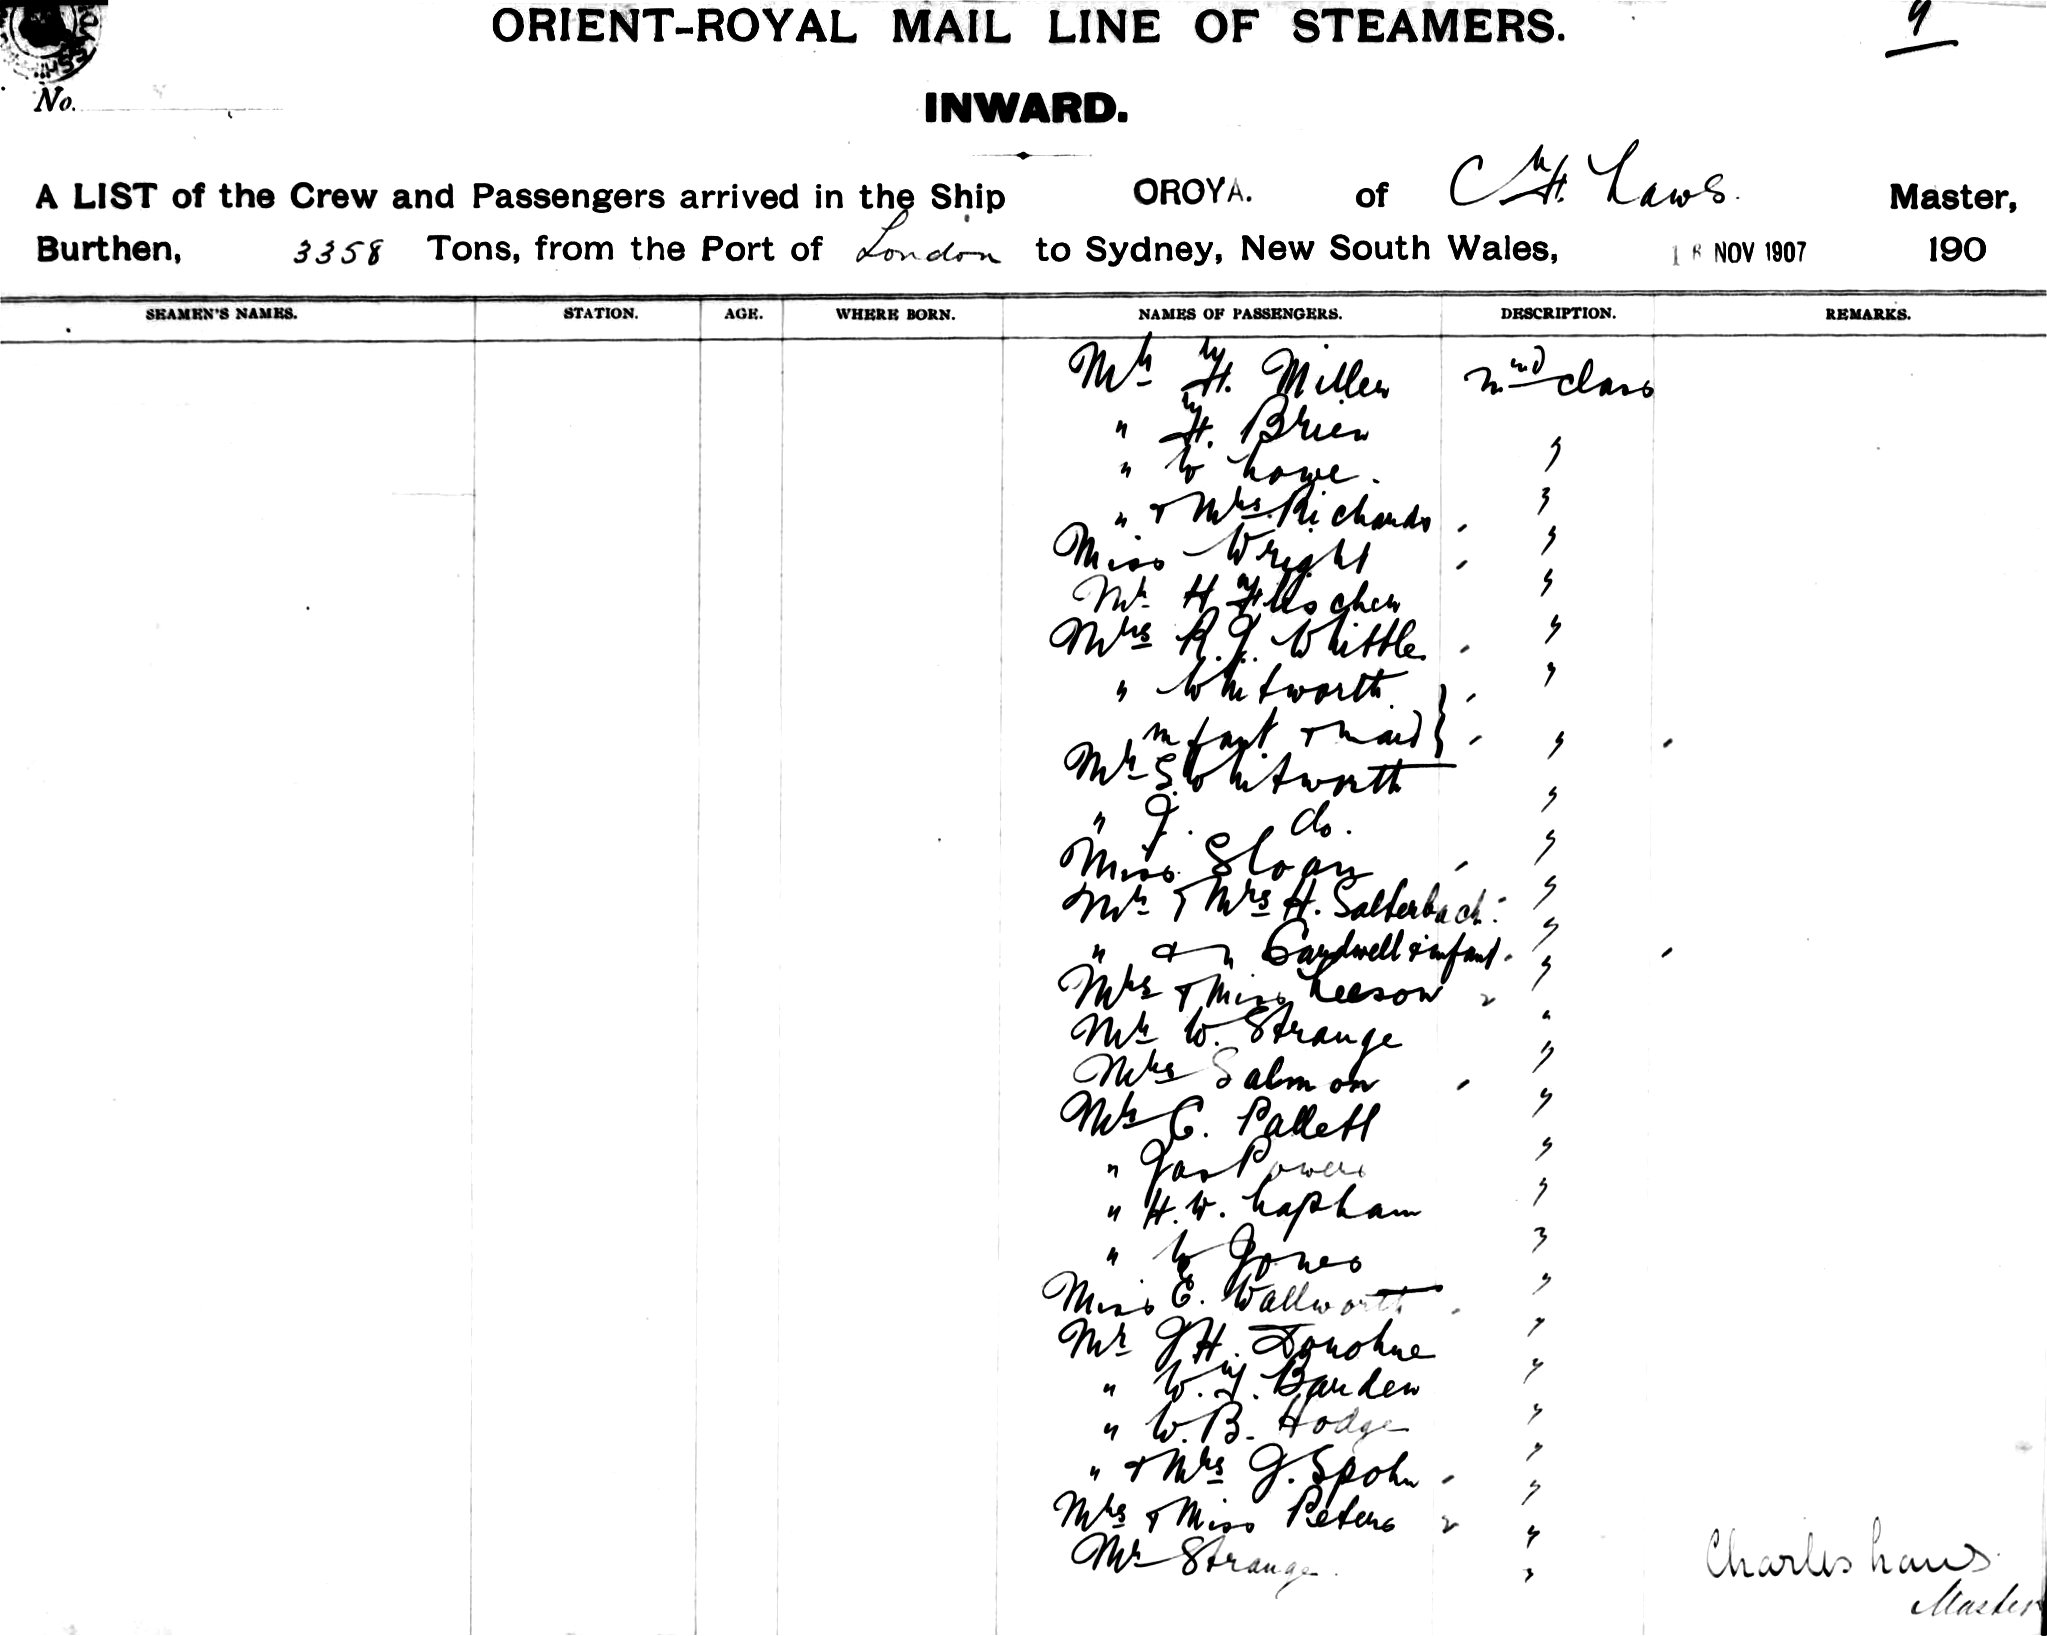 ORIENT-ROYAL MAIL LINE OF STEAMERS.
9
No.
INWARD.
A LIST of the Crew and Passengers arrived in the Ship OROYA. of C. F. Laws. Master,
Burthen, 3358 Tons, from the Port of London to Sydney, New South Wales, 16 NOV 1907 190
SEAMEN'S NAMES. STATION. AGE. WHERE BORN. NAMES OF PASSENGERS. DESCRIPTION. REMARKS.
Mr F. Miller class
" F. Brien "
" W Lowe. "
" & Mrs. Richards "
Miss Wright "
Mr H "
Mrs R. J. Whittle "
" Whitworth
infant & maid } "
Mr S. Whitworth "
" J. do. "
Miss Sloan "
Mr & Mrs H. Salterbach "
" & " Cardwell & infant "
Mrs & Miss Leeson "
Mr W. Strange "
Mrs Salmon "
Mr C. Pallett "
" Jas Powers "
" H. W. Lapham "
" W Jones "
Miss E. Wallworth "
Mr J H. Donohue "
" W. F. Barden "
" W. B. Hodge "
" & Mrs J. Spohn "
Mrs & Miss Peters "
Mr Strange "
Charles Laws
Master